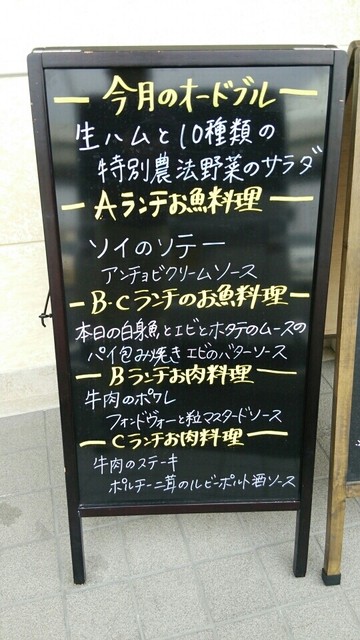 今月のオードブル
生ハムと10種類の
特別農法野菜のサラダ
Aランチお魚料理
ソイのソテー
アンチョビクリームソース
B・Cランチのお魚料理
本日の白身魚とエビとホタテのムースの
パイ包み焼き エビのバターソース
Bランチお肉料理
牛肉のポワレ
フォンドヴォーと粒マスタードソース
Cランチお肉料理
牛肉のステキ
ポルチーニ茸のルビーポルト酒ソース